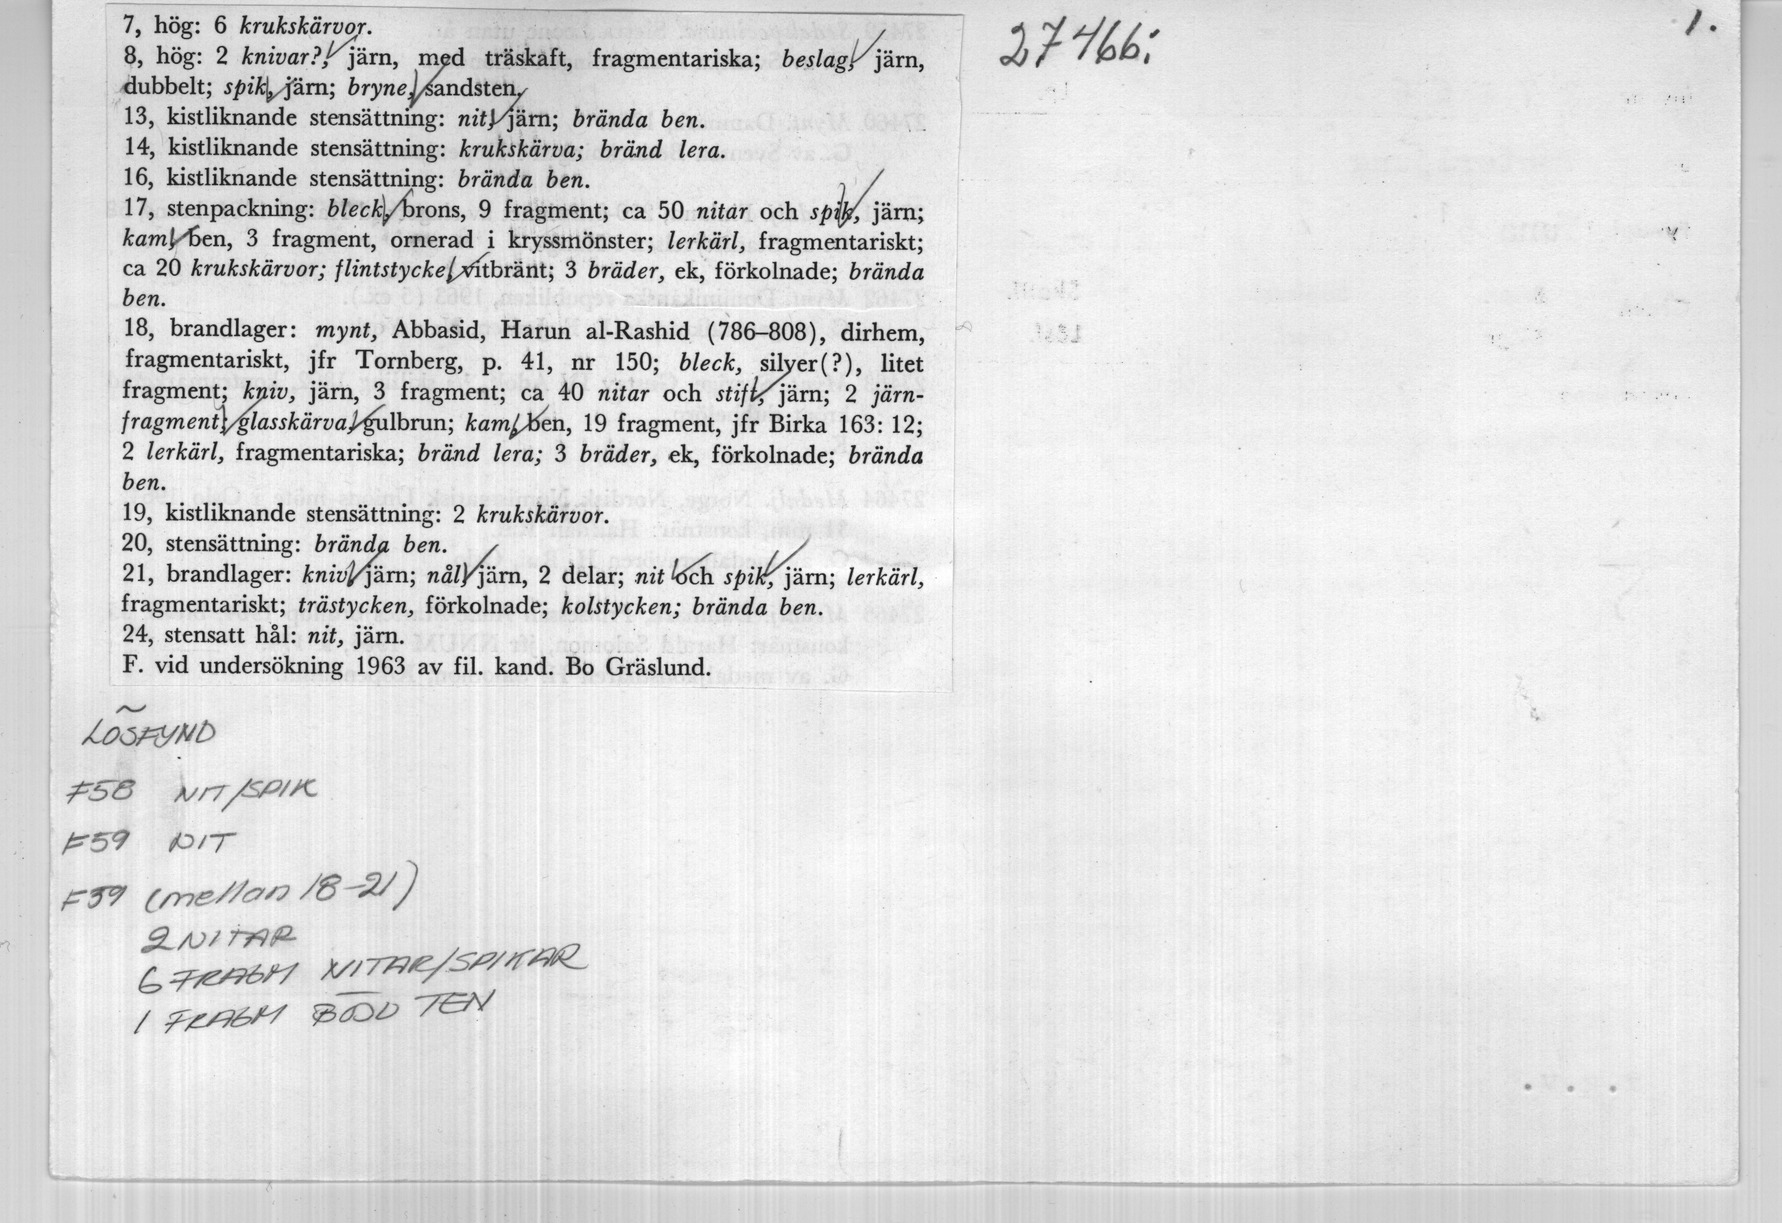 27466:
1.
7, hög: 6 krukskärvor.
8, hög: 2 knivar?, järn, med träskaft, fragmentariska; beslag, järn,
dubbelt; spik, järn; bryne, sandsten.
13, kistliknande stensättning: nit, järn; brända ben.
14, kistliknande stensättning: krukskärva; bränd lera.
16, kistliknande stensättning: brända ben.
17, stenpackning: bleck, brons, 9 fragment; ca 50 nitar och spik, järn;
kam, ben, 3 fragment, ornerad i kryssmönster; lerkärl, fragmentariskt;
ca 20 krukskärvor; flintstycke, vitbränt; 3 bräder, ek, förkolnade; brända
ben.
18, brandlager: mynt, Abbasid, Harun al-Rashid (786–808), dirhem,
fragmentariskt, jfr Tornberg, p. 41, nr 150; bleck, silver(?), litet
fragment; kniv, järn, 3 fragment; ca 40 nitar och stift, järn; 2 järn-
fragment; glasskärva, gulbrun; kam, ben, 19 fragment, jfr Birka 163: 12;
2 lerkärl, fragmentariska; bränd lera; 3 bräder, ek, förkolnade; brända
ben.
19, kistliknande stensättning: 2 krukskärvor.
20, stensättning: brända ben.
21, brandlager: kniv, järn; nål, järn, 2 delar; nit och spik, järn; lerkärl,
fragmentariskt; trästycken, förkolnade; kolstycken; brända ben.
24, stensatt hål: nit, järn.
F. vid undersökning 1963 av fil. kand. Bo Gräslund.
LÖSFYND
F58 NIT/SPIK
F59 NIT
F39 (mellan 18-21)
2 NITAR
6 FRAGM NITAR/SPIKAR
1 FRAGM BÖJD TEN